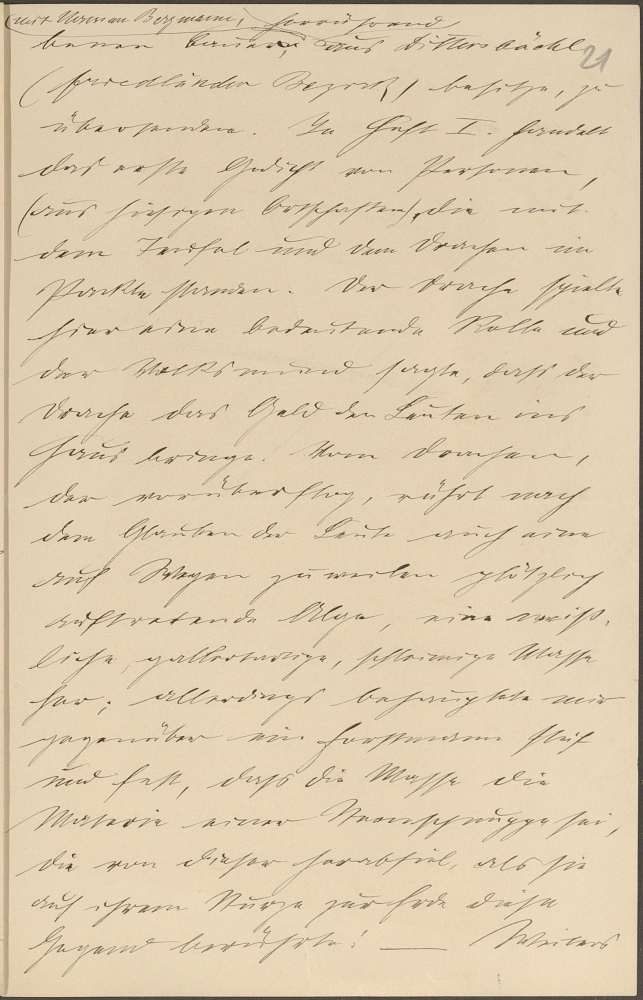 mit Namen Bergmann, herrührend
benen Bauern, aus Dittersbächl 21
(Friedländer Bezirk) besitze, zu
übersenden. In Heft I. handelt
das erste Gedicht von Personen,
(aus hiesigen Ortschaften), die mit
dem Teufel und dem Drachen im
Pakte standen. Der Drache spielte
hier eine bedeutende Rolle und
der Volksmund sagte, dass der
Drache das Geld den Leuten ins
Haus bringe. Vom Drachen,
der vorüberflog, rührt nach
dem Glauben der Leute auch eine
auf Wegen zuweilen plötzlich
auftretende Alge, eine weiß-
liche, gallertartige, schleimige Masse
her; allerdings behauptete mir
gegenüber ein Forstmann steif
und fest, dass die Masse die
Materie einer Sternschnuppe sei,
die von dieser herabfiel, als sie
auf ihrem Sturze zur Erde diese
Gegend berührte! — Weiters